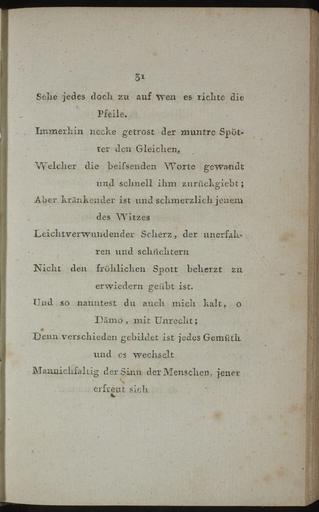 31
Sehe jedes doch zu auf wen es richte die
Pfeile.
Immerhin necke getrost der muntre Spöt-
ter den Gleichen,
Welcher die beifsenden Worte gewandt
und schnell ihm zurückgiebt;
Aber kränkender ist und schmerzlich jenem
des Witzes
Leichtverwundender Scherz, der unerfah-
ren und schüchtern
Nicht den fröhlichen Spott beherzt zu
erwiedern geübt ist.
Und so nanntest du auch mich kalt, o
Dämo, mit Unrecht;
Denn verschieden gebildet ist jedes Gemüth
und es wechselt
Mannichfaltig der Sinn der Menschen, jener
erfreut sich